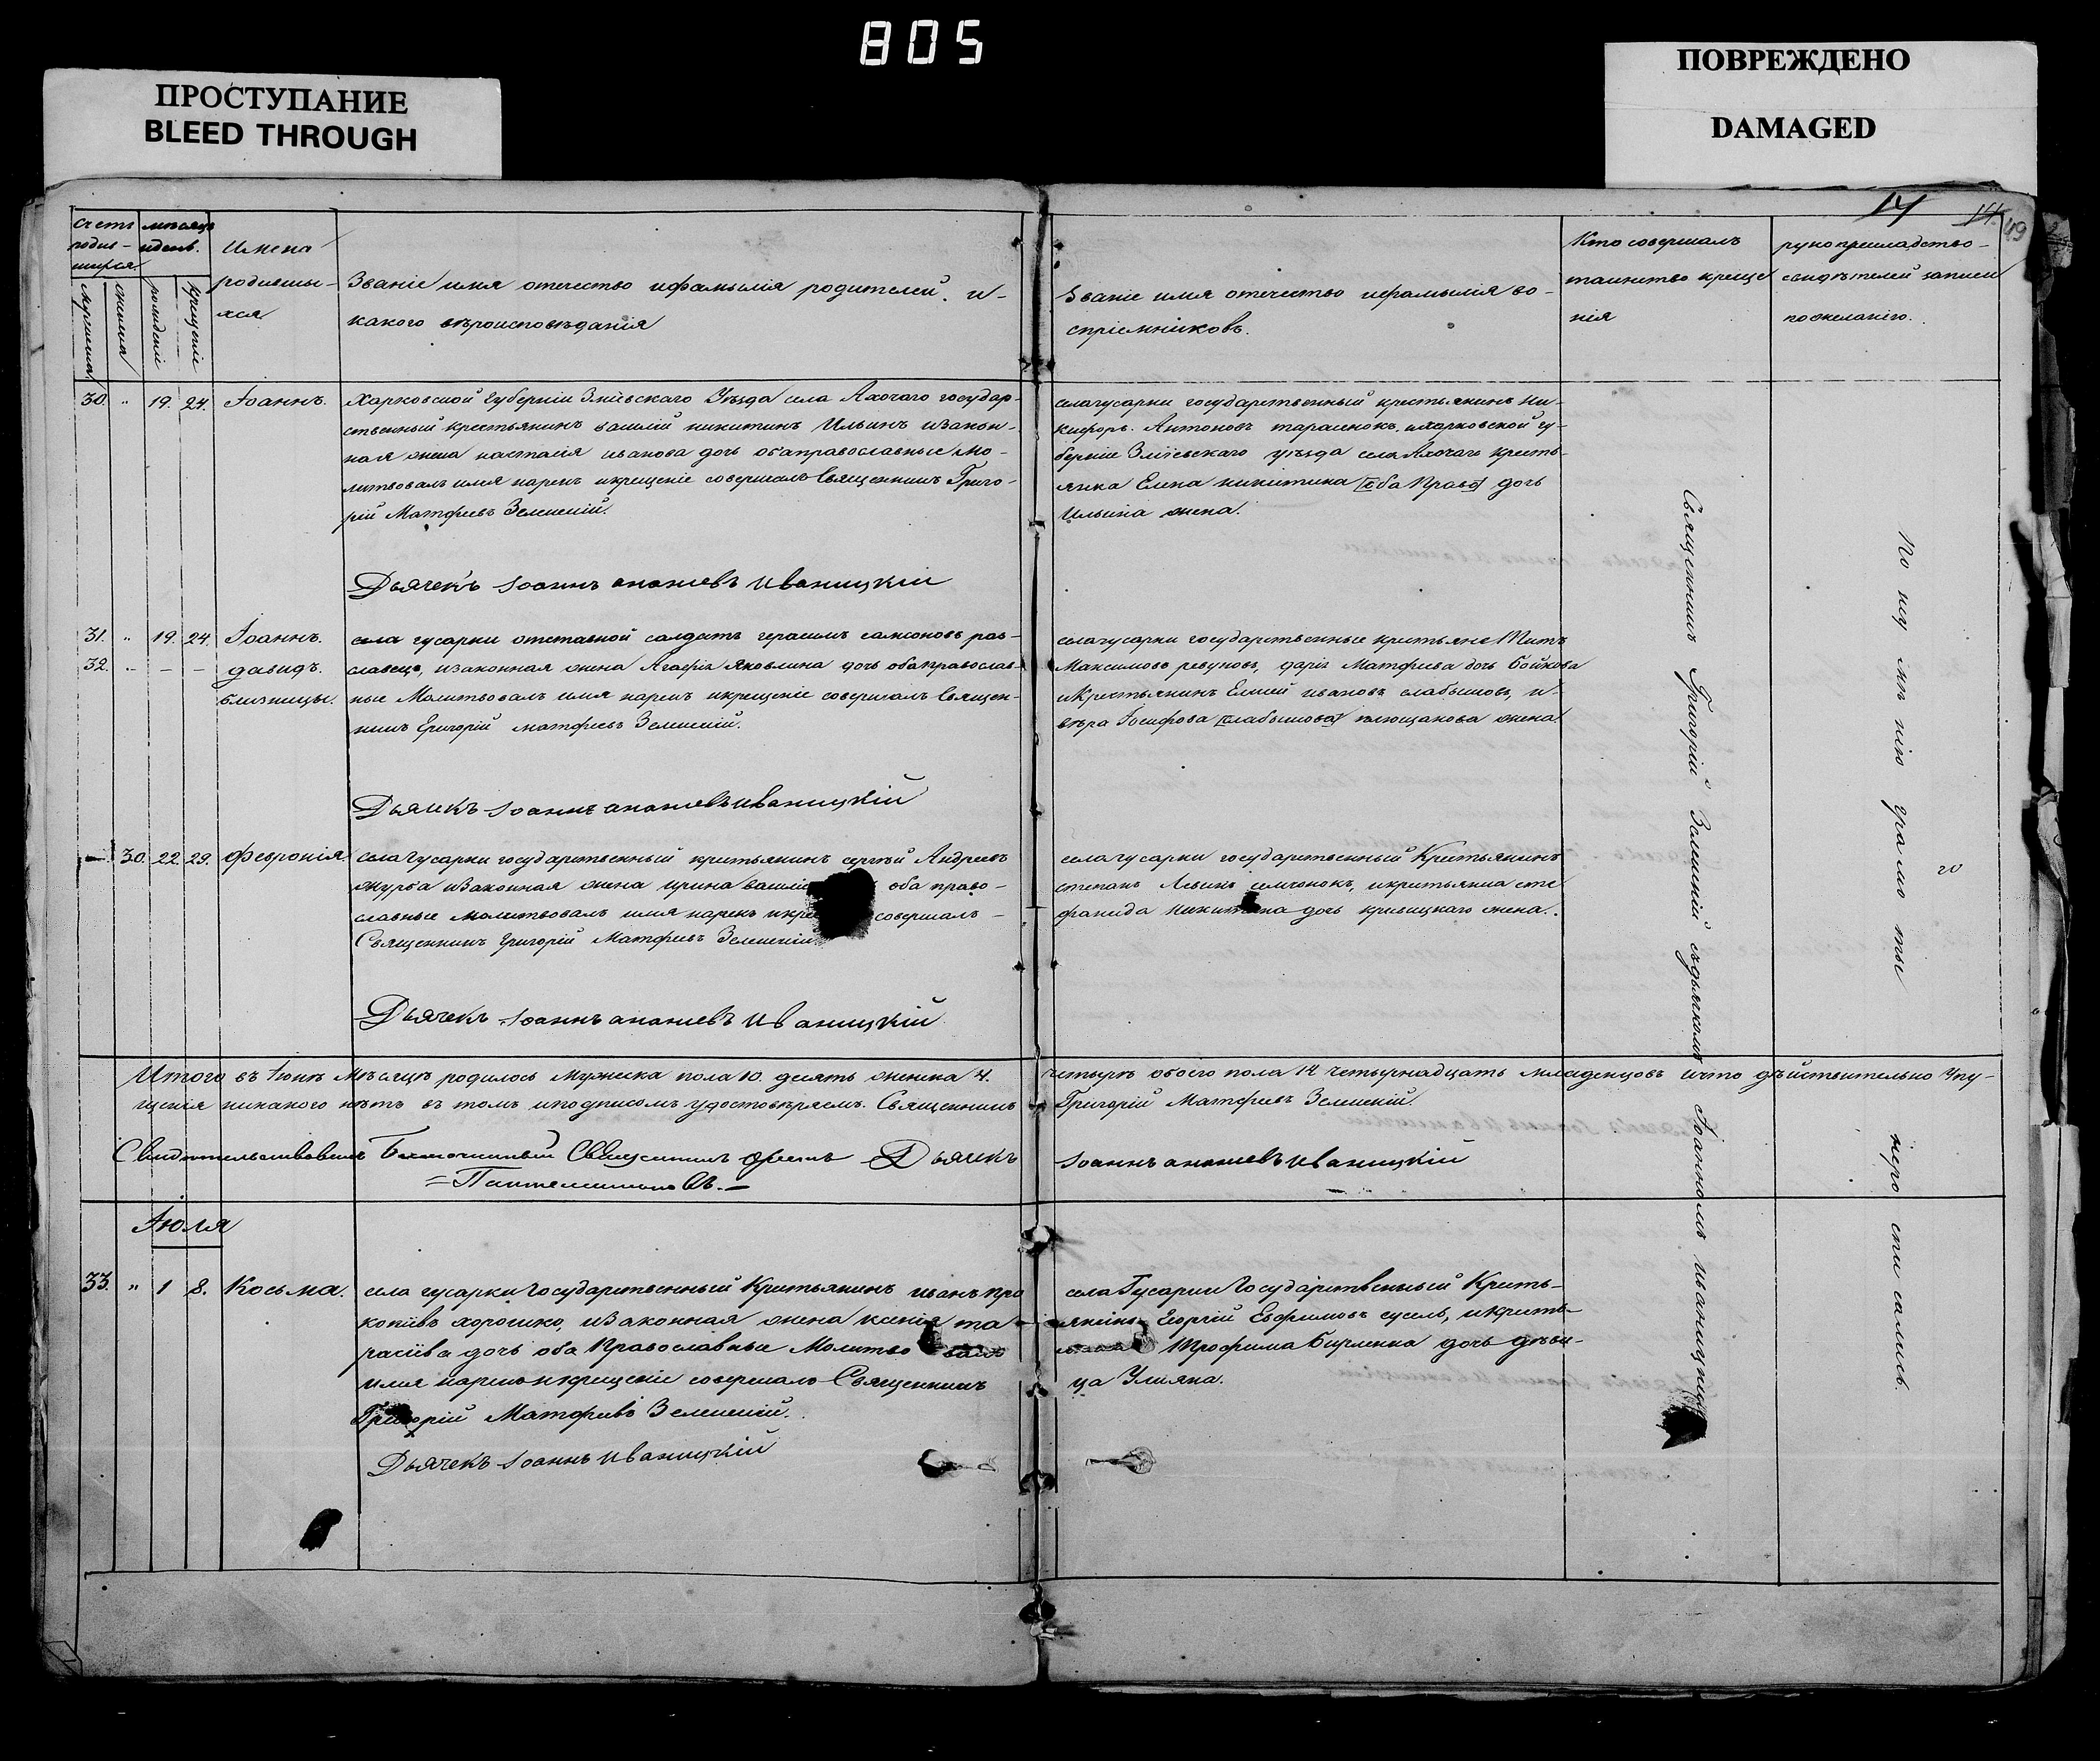 805
ПРОСТУПАНИЕ
BLEED THROUGH
ПОВРЕЖДЕНО
DAMAGED
14
49
Счетъ родив-шихся.
мѣсяцъ идень.
мужеска
женска
рожденіе
крещеніе
Имена
родившы-
хся
Званіе имя отечество ифамылія родителей. и-
какого вѣроисповѣданія
Званіе имя отечество ифамылія во-
спріемниковъ.
Кто совершалъ
таинство креще
нія
рукоприкладство-
свидѣтелей записи
пожеланію.
30. " 19. 24. Іоаннъ.
Харковской Губерніи Зміевскаго Уѣзда села Лхочаго государ-
ственный крестьянинъ василій никитинъ Ильинъ изакон-
ная жена настасія иванова дочь обаправославные Мо-
литвовалъ имя нарекъ икрещеніе совершалъ Священникъ Григо-
рій Матфеевъ Зеленскій.
Дьячекъ Іоаннъ ананіевъ иваницкій
селагусарки государственный крестьянинъ Ни-
кифоръ Антоновъ тарасенокъ, ихарковской гу-
берніи Зміевскаго уѣзда села Лхочаго кресть-
янка Елена никитина [оба Право] дочь
Ильина жена.
31. " 19. 24. Іоаннъ.
32. " — — давидъ.
близницы.
села гусарки отставной солдатъ герасимъ самсоновъ
изаконная жена Агафія Яковлина дочь обаправослав-
ные Молитвовалъ имя нарекъ икрещеніе совершалъ Священ-
никъ Григорій матфеевъ Зеленскій.
Дьячекъ Іоаннъ ананіевъ иваницкій
селагусарки государственные крестьяне Титъ
Максимовъ ревуновъ, дарія Матфиева дочь бойкова
иКрестьянинъ Елисей ивановъ слабышовъ, и
вѣра Іосифова [слабышова] жена.
30. 22. 29. Февронія
селаГусарки государственный крестьянинъ сергѣй Андреевъ
журба изаконная жена ирина оба право-
славные молитвовалъ имя нарекъ совершалъ-
Священникъ Григорій Матфеевъ Зеленскій.
Дьячекъ Іоаннъ ананіевъ иваницкій
селагусарки государственный Крестьянинъ
степанъ икрестьянка сте
фанида дочь кривицкаго жена.
Итого въ Іюнѣ Мѣсяцѣ родилось Мужеска пола 10. десять женска 4. четырѣ обоего пола 14 четырнадцать младенцовъ ичто дѣйствительно Упу-
щенія никакого нѣтъ въ томъ иподписомъ удостовѣряемъ. Священникъ Григорій Матфеевъ Зеленскій.
Свидѣтельствовалъ Благочинный Священникъ
Дьячекъ Іоаннъ ананіевъ иваницкій
Іюля
33. " 1 8. Косьма.
села гусарки Государственный Крестьянинъ иванъ про
копіевъ хорошко, изаконная жена ксенія та
расіева дочь оба Православные Молитвовалъ
имя нарекъ икрещеніе совершалъ Священникъ
Григорій Матфеевъ Зеленскій.
Дьячекъ Іоаннъ иваницкій
села Гусарки Государственный Кресть-
янинъ Георгій Евфимовъ сусель, икресть-
Трофима дочь дѣви-
ца Улияна.
Священникъ Григорій Зеленскій съдьячкомъ Іоанномъ иваницкимъ
По неу мѣ нію грамо ты